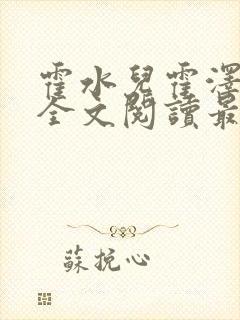 霍水兒霍澤
全文閱讀最
蘇挽心